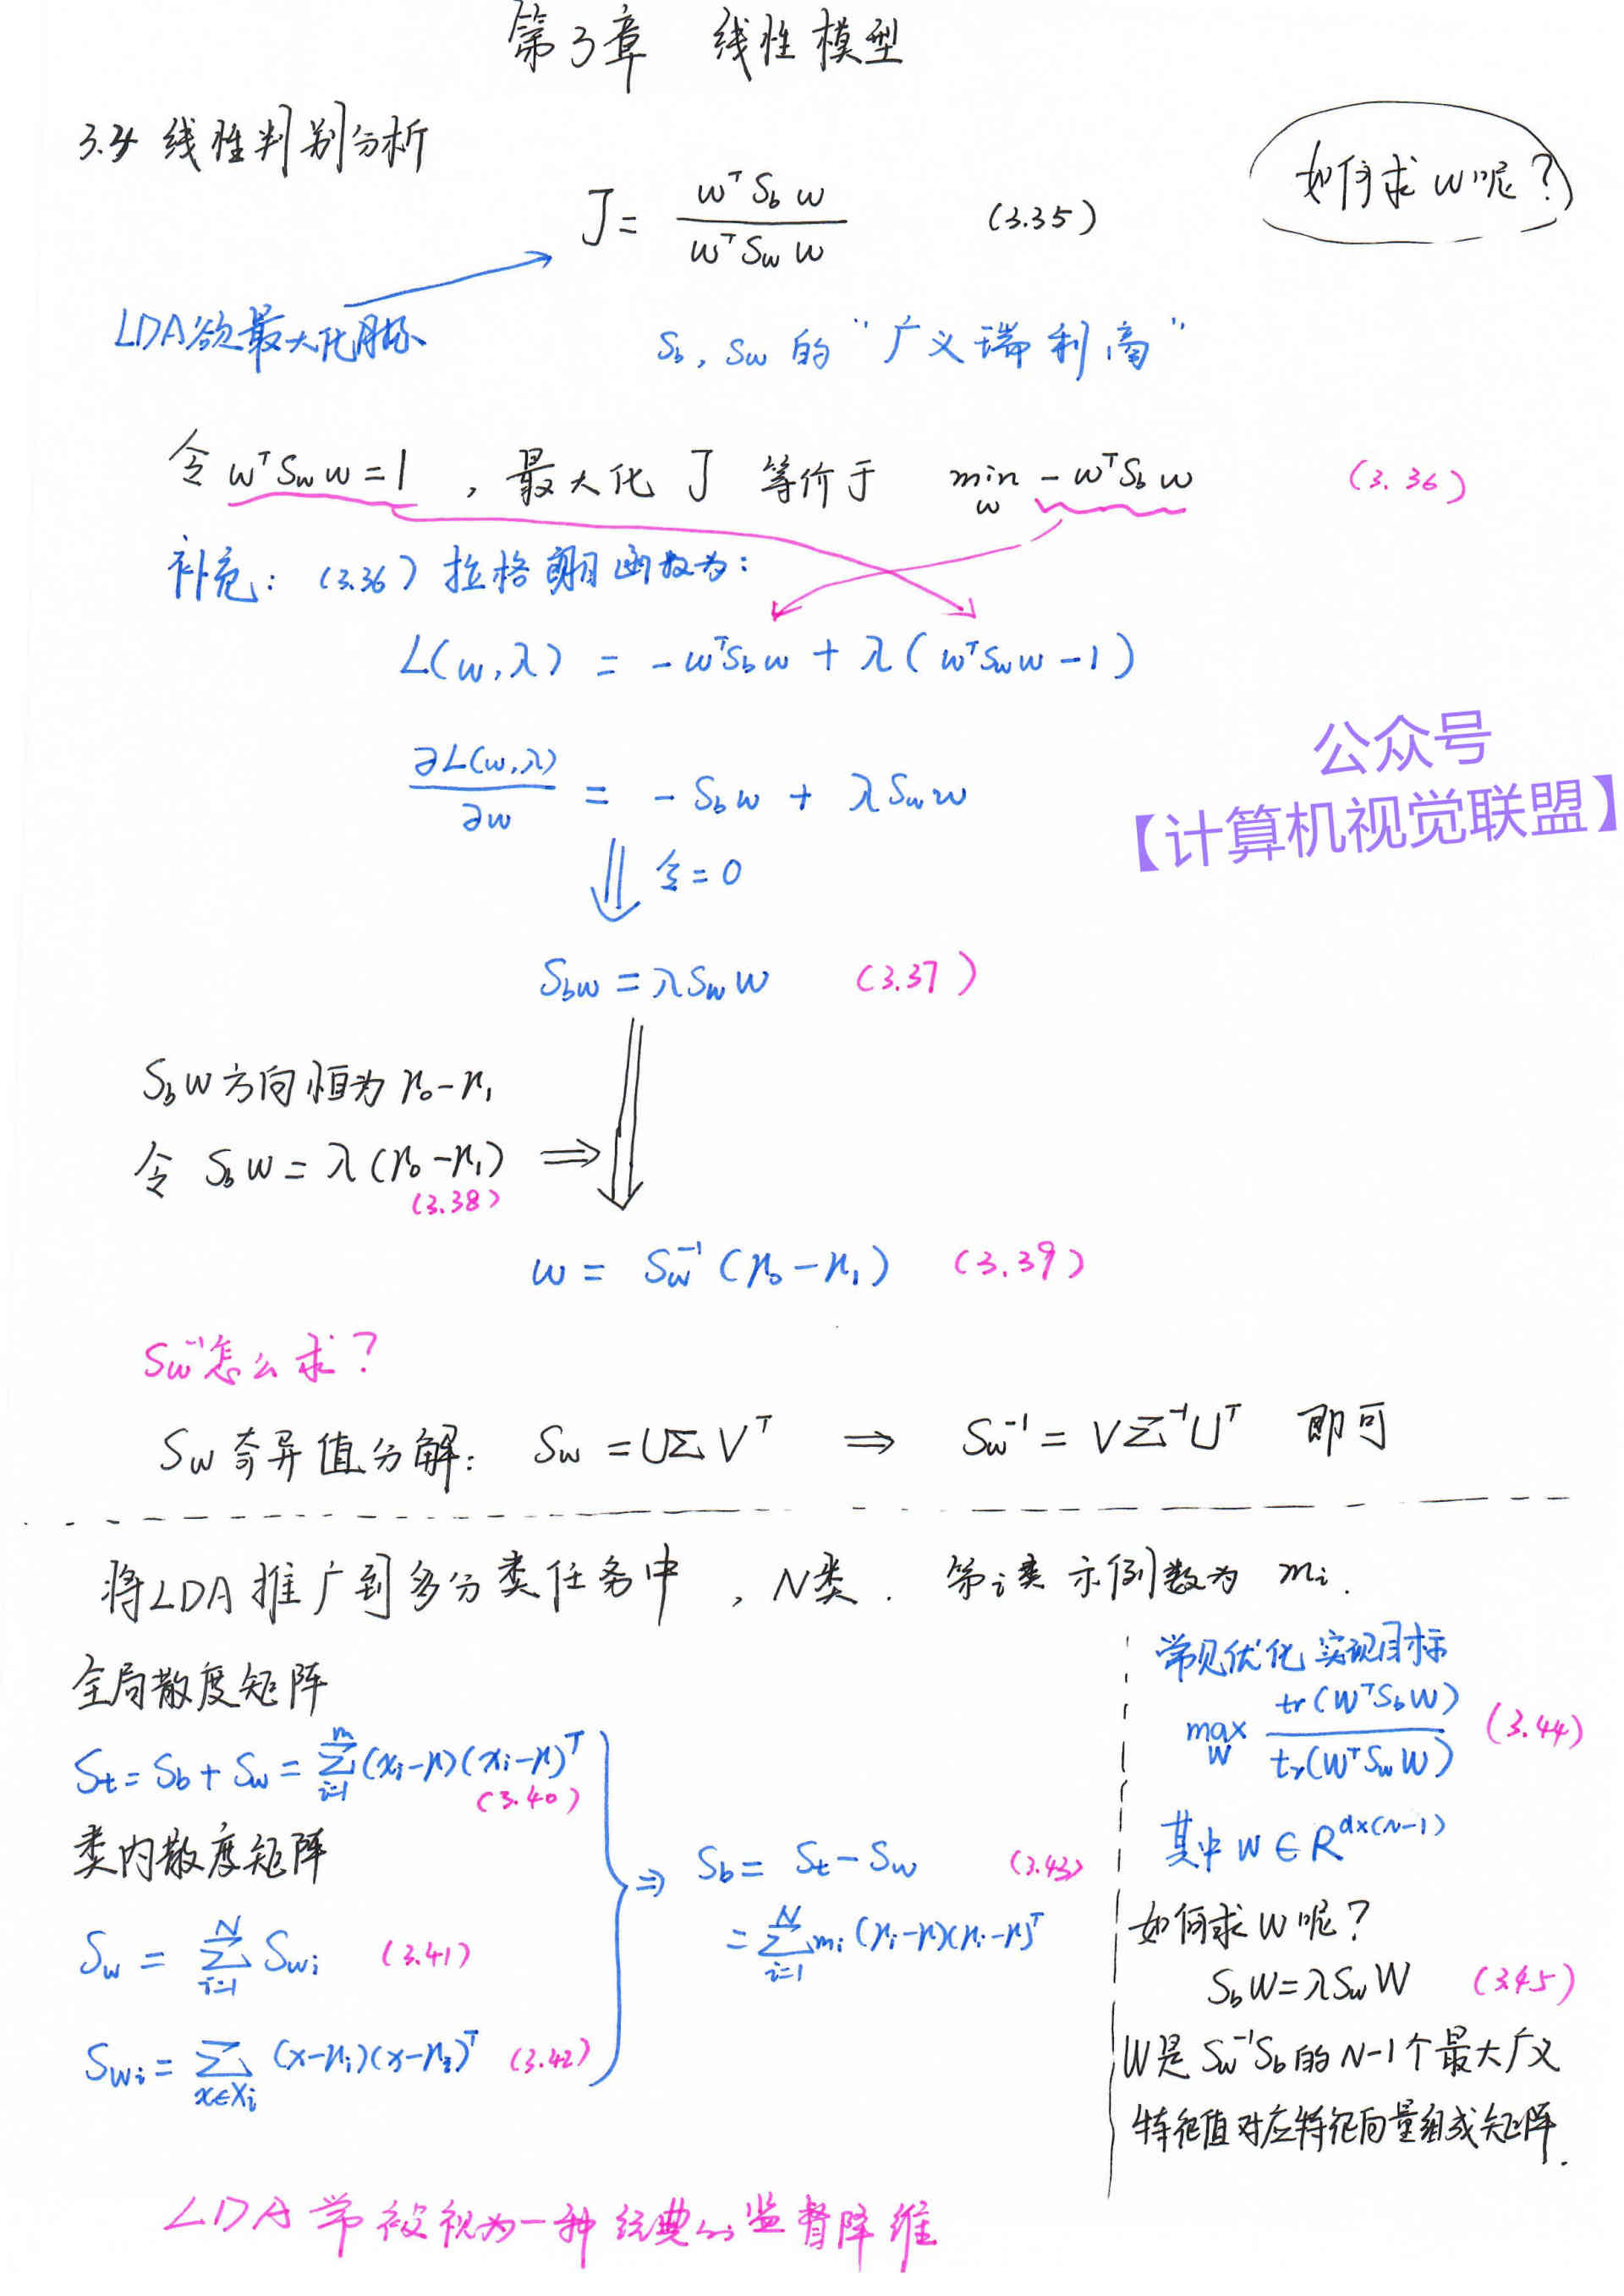 第3章 线性模型
3.4 线性判别分析
如何求 w 呢?
J = \frac{w^T S_b w}{w^T S_w w} (3.35)
LDA欲最大化目标
S_b, S_w 的 "广义瑞利商"
令 w^T S_w w = 1 , 最大化 J 等价于 min_w - w^T S_b w (3.36)
补充: (3.36) 拉格朗日函数为:
L(w,λ) = -w^T S_b w + λ(w^T S_w w - 1)
\frac{∂L(w,λ)}{∂w} = - S_b w + λ S_w w
公众号
【计算机视觉联盟】
⇓ 令 = 0
S_b w = λ S_w w (3.37)
S_b w 方向恒为 μ_0 - μ_1
令 S_b w = λ(μ_0 - μ_1) ⇒
(3.38)
w = S_w^{-1} (μ_0 - μ_1) (3.39)
S_w^{-1} 怎么求?
S_w 奇异值分解: S_w = UΣV^T ⇒ S_w^{-1} = VΣ^{-1}U^T 即可
将LDA推广到多分类任务中 , N类 . 第i类示例数为 m_i .
全局散度矩阵
S_t = S_b + S_w = \sum_{i=1}^{m} (x_i - μ)(x_i - μ)^T
(3.40)
类内散度矩阵
S_w = \sum_{i=1}^{N} S_{wi} (3.41)
S_{wi} = \sum_{x∈X_i} (x - μ_i)(x - μ_i)^T (3.42)
⇒ S_b = S_t - S_w (3.43)
= \sum_{i=1}^{N} m_i (μ_i - μ)(μ_i - μ)^T
常见优化实现目标
max_W \frac{tr(W^T S_b W)}{tr(W^T S_w W)} (3.44)
其中 W ∈ R^{d×(N-1)}
如何求 W 呢?
S_b W = λ S_w W (3.45)
W是 S_w^{-1} S_b 的 N-1 个最大广义
特征值对应特征向量组成矩阵.
LDA常被视为一种经典的监督降维